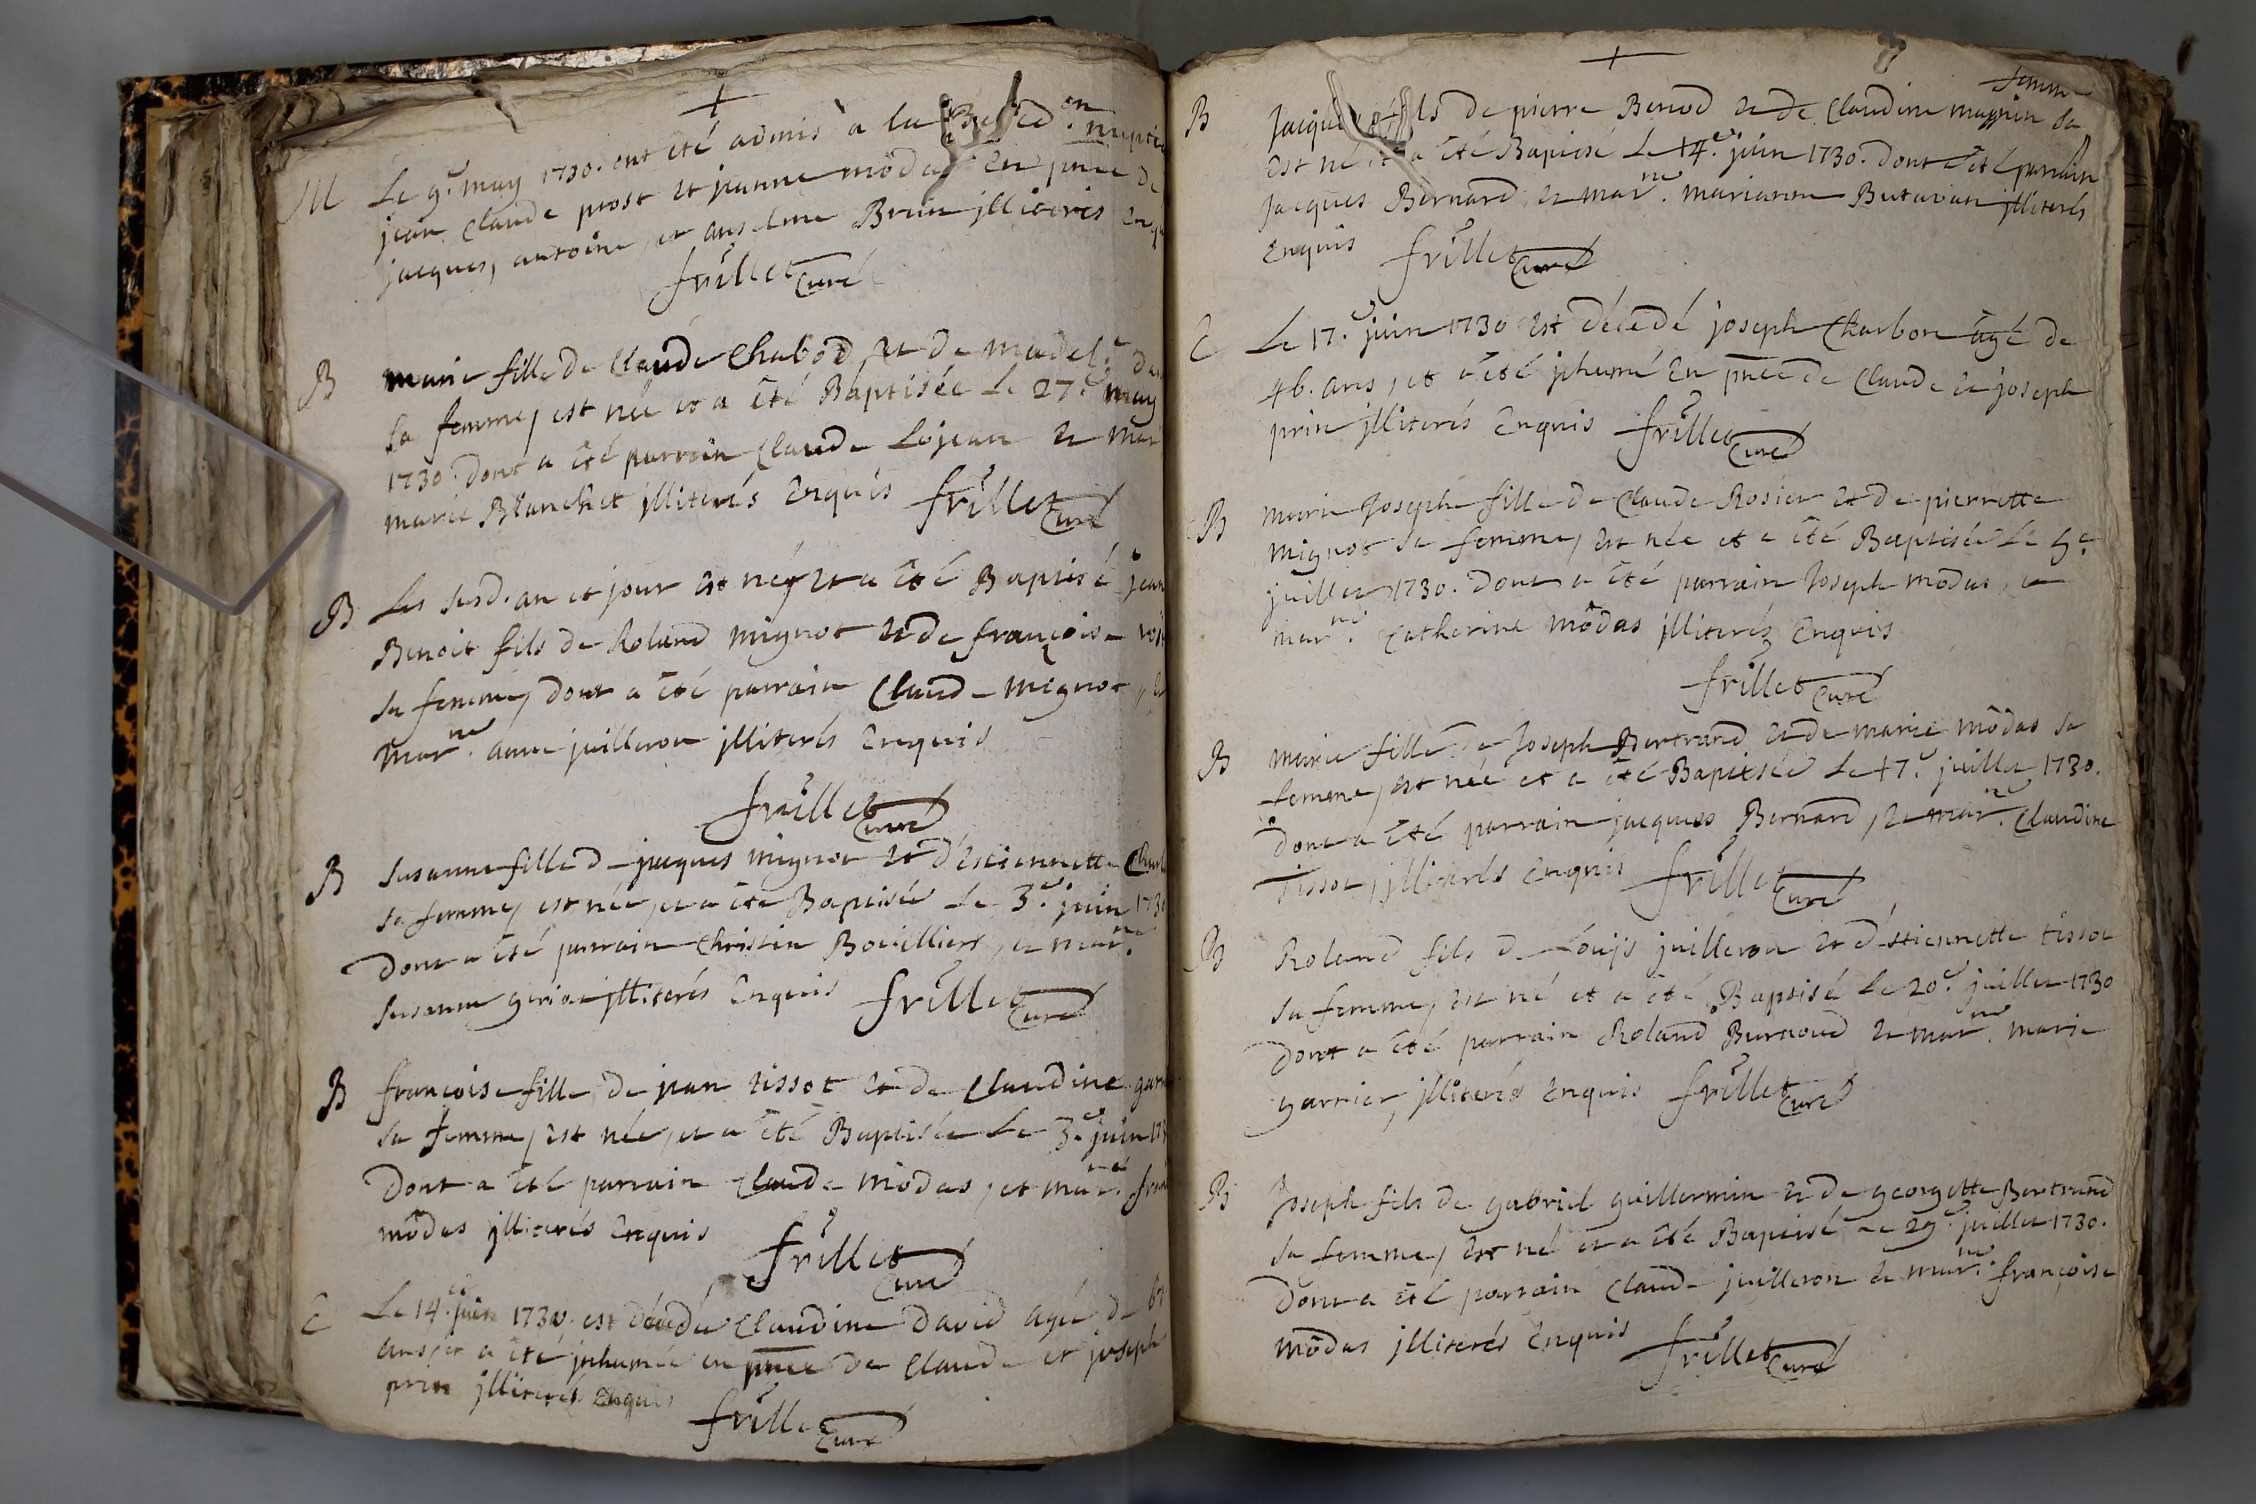 M Le 9.e may 1730. ont été admis à la Bened.on nuptia
jean Claude prost et jeanne môdas en pnce de
jacques, antoine, et anselme Brun jlliterés enq
frillet Curé
B marie fille de Claude Chabod et de madel.e
sa femme, est née et a été Baptisée Le 27.e may
1730. dont a été parrain Claude Lojean et mar
marie Blanchet jlliterés Enquis frillet Curé
B Les susd. an et jour est né, et a été Baptisé jean
Benoit fils de Roland mignot et de françoise
sa femme, dont a été parrain Claude mignot, et
mar.ne anne juilleron jlliterés Enquis
frillet Curé
B Susanne fille de jacques mignot et d'Estiennette
sa femme, est née, et a été Baptisée Le 3.e juin 1730
Dont a été parrain Christin Bovilliers, et mar.ne
Susanne jlliterés Enquis frillet Curé
B françoise fille de jean tissot et de Claudine
sa femme, est née, et a été Baptisée Le 3.e juin 173
Dont a été parrain Claude môdas, et mar.ne
môdas jlliterés Enquis frillet Curé
E Le 14.e juin 1730. est décédée Claudine David agée de
ans, et a été jnhumée en pnce de Claude et joseph
prin jlliterés Enquis frillet Curé
femme
B Jacques fils de pierre Benod et de Claudine magnin sa
est né et a été Baptisé Le 14.e juin 1730. dont a été parrain
Jacques Bernard, et mar.ne mariaron Butavan jlliterés
Enquis frillet Curé
E Le 17.e juin 1730 est décédé joseph Charbon âgé de
46. ans, et a été jnhumé En pnce de Claude et joseph
prin jlliterés Enquis frillet Curé
B marie Joseph fille de Claude Rosier et de pierrette
mignot sa femme, est née et a été Baptisée Le
juillet 1730. dont a été parrain Joseph môdas, et
mar.ne Catherine môdas jlliterés Enquis
frillet Curé
B marie fille de Joseph Bertrand et de marie môdas sa
femme, est née et a été Baptisée Le 17.e juillet 1730.
dont a été parrain jacques Bernard, et mar.ne Claudine
tissot, jlliterés Enquis frillet Curé
B Roland fils de Loüis juilleron et d'Estiennette tissot
sa femme, est né et a été Baptisé Le 20.e juillet 1730
dont a été parrain Roland Burnoud et mar.ne marie
garnier, jlliterés Enquis frillet Curé
B Joseph fils de gabriel guillermin et de georgette Bertrand
sa femme, est né et a été Baptisé Le 29.e juillet 1730.
dont a été parrain Claude juilleron et mar.ne françoise
môdas jlliterés Enquis frillet Curé